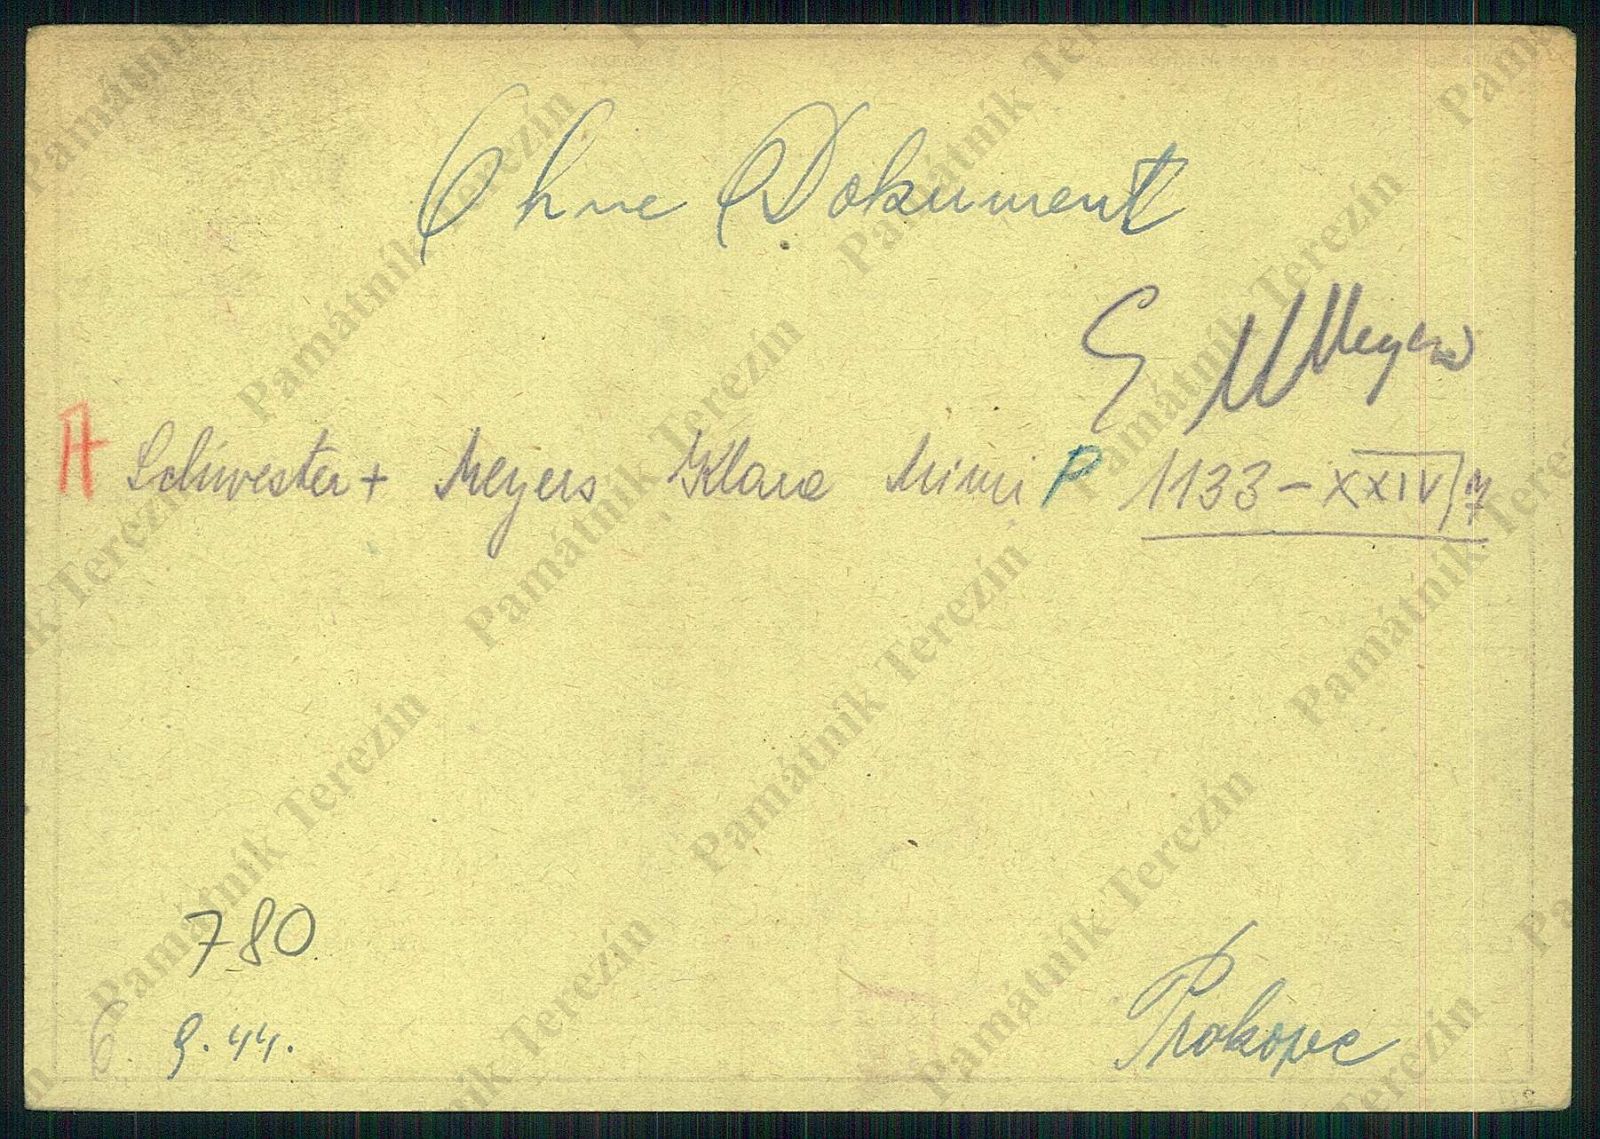 Ohne Dokument
E Meyers
A Schwester + Meyers Klara Mimi P 1133 - XXIV/7
780
6. 9. 44.
Prokopec
Památník Terezín